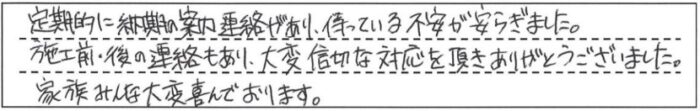 定期的に納期の案内連絡があり、待っている不安が安らぎました。
施工前・後の連絡もあり、大変信切な対応を頂きありがとうございました。
家族みんな大変喜んでおります。